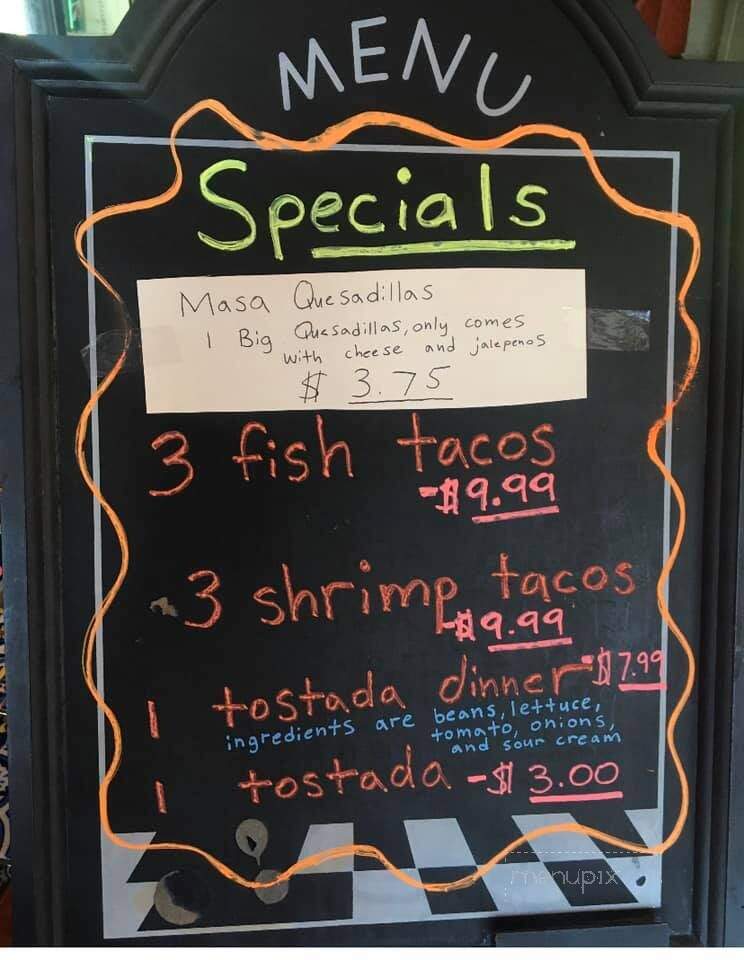 MENU
Specials
Masa Quesadillas
1 Big Quesadillas, only comes
with cheese and jalepenos
$ 3.75
3 fish tacos
-$9.99
3 shrimp tacos
-$9.99
1 tostada dinner -$7.99
ingredients are beans, lettuce,
tomato, onions,
and sour cream
1 tostada -$3.00
menupix